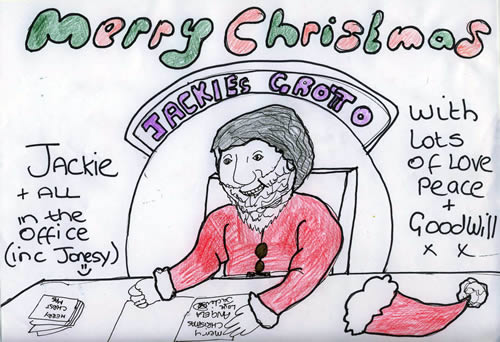 Merry Christmas
JACKIES GROTTO
JACKIE
+ ALL
in the
OFFICE
(inc Jonesy)
with
LOTS
OF LOVE
Peace
+
GOODWILL
x x
MERRY
CHRIST
MAS
merry
CHRISTMAS
ANGELA
Love